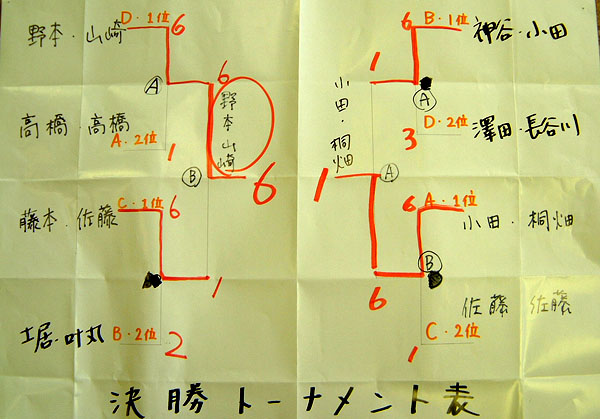 野本・山崎 D・1位 6
A
高橋・高橋 A・2位 1
6
野本 山崎
B
6
藤本・佐藤 C・1位 6
1
土居・叶丸 B・2位 2
6 B・1位 神谷・小田
1
A
3 D・2位 澤田・長谷川
小田・桐畑
1
A
6 A・1位 小田・桐畑
B
6
佐藤 佐藤
1 C・2位
決勝トーナメント表